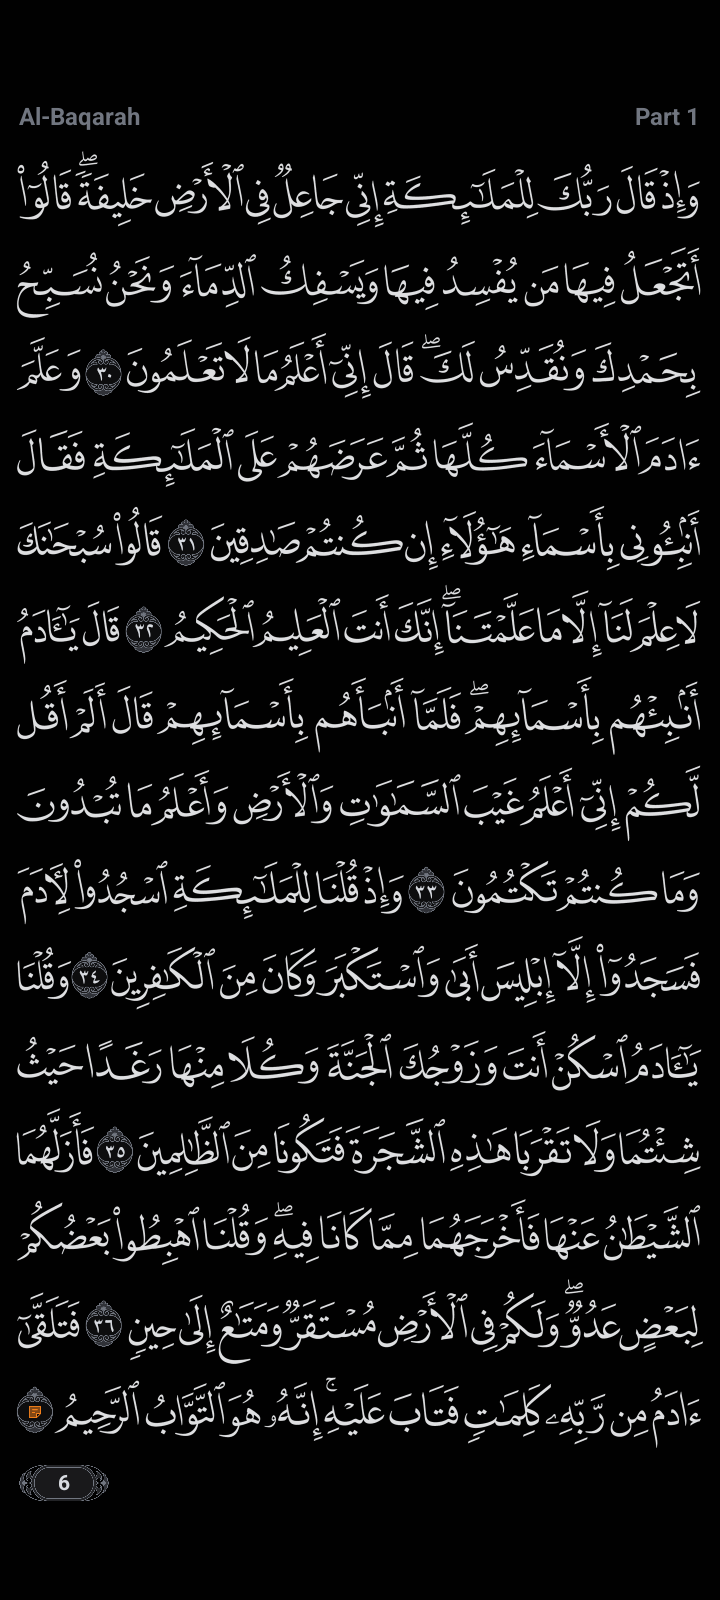 Al-Baqarah
Part 1
وَإِذۡ قَالَ رَبُّكَ لِلۡمَلَٰٓئِكَةِ إِنِّي جَاعِلٞ فِي ٱلۡأَرۡضِ خَلِيفَةٗۖ قَالُوٓاْ
أَتَجۡعَلُ فِيهَا مَن يُفۡسِدُ فِيهَا وَيَسۡفِكُ ٱلدِّمَآءَ وَنَحۡنُ نُسَبِّحُ
بِحَمۡدِكَ وَنُقَدِّسُ لَكَۖ قَالَ إِنِّيٓ أَعۡلَمُ مَا لَا تَعۡلَمُونَ ٣٠ وَعَلَّمَ
ءَادَمَ ٱلۡأَسۡمَآءَ كُلَّهَا ثُمَّ عَرَضَهُمۡ عَلَى ٱلۡمَلَٰٓئِكَةِ فَقَالَ
أَنۢبِـُٔونِي بِأَسۡمَآءِ هَٰٓؤُلَآءِ إِن كُنتُمۡ صَٰدِقِينَ ٣١ قَالُواْ سُبۡحَٰنَكَ
لَا عِلۡمَ لَنَآ إِلَّا مَا عَلَّمۡتَنَآۖ إِنَّكَ أَنتَ ٱلۡعَلِيمُ ٱلۡحَكِيمُ ٣٢ قَالَ يَٰٓـَٔادَمُ
أَنۢبِئۡهُم بِأَسۡمَآئِهِمۡۖ فَلَمَّآ أَنۢبَأَهُم بِأَسۡمَآئِهِمۡ قَالَ أَلَمۡ أَقُل
لَّكُمۡ إِنِّيٓ أَعۡلَمُ غَيۡبَ ٱلسَّمَٰوَٰتِ وَٱلۡأَرۡضِ وَأَعۡلَمُ مَا تُبۡدُونَ
وَمَا كُنتُمۡ تَكۡتُمُونَ ٣٣ وَإِذۡ قُلۡنَا لِلۡمَلَٰٓئِكَةِ ٱسۡجُدُواْ لِأٓدَمَ
فَسَجَدُوٓاْ إِلَّآ إِبۡلِيسَ أَبَىٰ وَٱسۡتَكۡبَرَ وَكَانَ مِنَ ٱلۡكَٰفِرِينَ ٣٤ وَقُلۡنَا
يَٰٓـَٔادَمُ ٱسۡكُنۡ أَنتَ وَزَوۡجُكَ ٱلۡجَنَّةَ وَكُلَا مِنۡهَا رَغَدًا حَيۡثُ
شِئۡتُمَا وَلَا تَقۡرَبَا هَٰذِهِ ٱلشَّجَرَةَ فَتَكُونَا مِنَ ٱلظَّٰلِمِينَ ٣٥ فَأَزَلَّهُمَا
ٱلشَّيۡطَٰنُ عَنۡهَا فَأَخۡرَجَهُمَا مِمَّا كَانَا فِيهِۖ وَقُلۡنَا ٱهۡبِطُواْ بَعۡضُكُمۡ
لِبَعۡضٍ عَدُوّٞۖ وَلَكُمۡ فِي ٱلۡأَرۡضِ مُسۡتَقَرّٞ وَمَتَٰعٌ إِلَىٰ حِينٖ ٣٦ فَتَلَقَّىٰٓ
ءَادَمُ مِن رَّبِّهِۦ كَلِمَٰتٖ فَتَابَ عَلَيۡهِۚ إِنَّهُۥ هُوَ ٱلتَّوَّابُ ٱلرَّحِيمُ
6